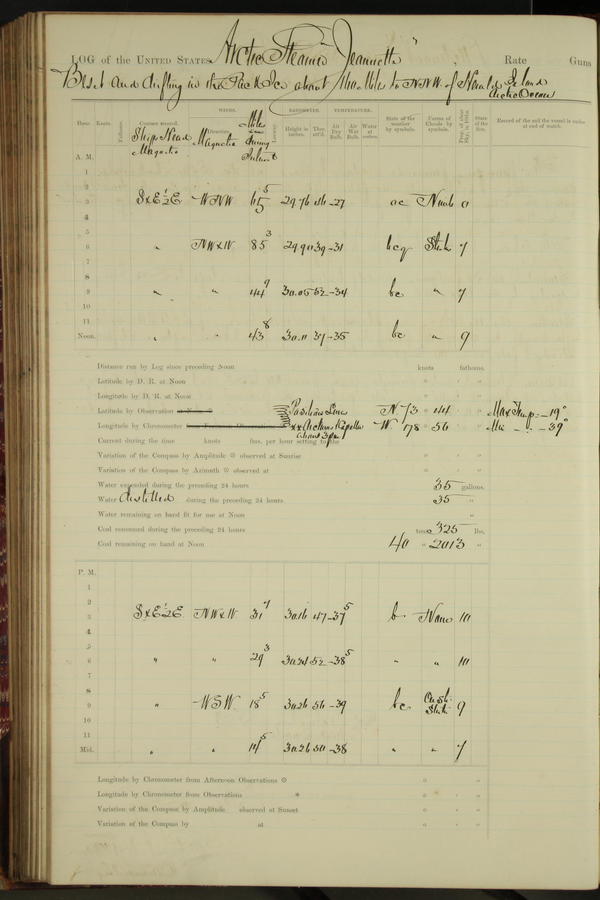 LOG of the UNITED STATES Arctic Steamer "Jeannette" Rate Guns
Beset and drifting in the Pack Ice about miles to NNW of Herald Island
Arctic Ocean
WINDS. BAROMETER. TEMPERATURE.
Hour. Knots. Fathoms. Courses steered. Direction. Height in inches. Ther. att'd. Air Dry Bulb. Air Wet Bulb. Water at surface. State of the weather by symbols. Forms of Clouds by symbols. State of the Sea. Record of the sail the vessel is under at end of watch.
Ship's Head Magnetic Magnetic Miles in during
A. M.
1
2
3 SxE½E WNW 29.76 -27 oc Nimb 0
4
5
6 " NWxW 85 3 29.90 39 -31 bcq Strat 7
7
8
9 " " 44 9 30.05 52 -34 bc " 7
10
11
Noon. " " 43 8 30.11 37 -35 bc " 9
Distance run by Log since preceding Noon knots fathoms.
Latitude by D. R. at Noon ° ' "
Longitude by D. R. at Noon ° ' "
Latitude by Observation Position Line N. 73 ° 44 Max Temp. -19°
Longitude by Chronometer xx Arcturus & Capella W 178 ° 56 Min " -39°
about 3 pm
Current during the time knots fms. per hour setting to the
Variation of the Compass by Amplitude ☉ observed at Sunrise ° ' "
Variation of the Compass by Azimuth ☉ observed at ° ' "
Water expended during the preceding 24 hours 35 gallons.
Water distilled during the preceding 24 hours 35 "
Water remaining on hand fit for use at Noon "
Coal consumed during the preceding 24 hours tons 325 lbs.
Coal remaining on hand at Noon 40 " 2013 "
P. M.
1
2
3 SxE½E NWxW 31 7 30.16 47 -37 5 b None 10
4
5
6 " " 29 3 30.24 52 -38 5 " " 10
7
8
9 " WSW 18 5 30.26 56 -39 bc Cir. St. Strat. 9
10
11
Mid. " " 5 30.26 50 -38 " " 7
Longitude by Chronometer from Afternoon Observations ☉ ° ' "
Longitude by Chronometer from Observations * ° ' "
Variation of the Compass by Amplitude observed at Sunset ° ' "
Variation of the Compass by at ° ' "